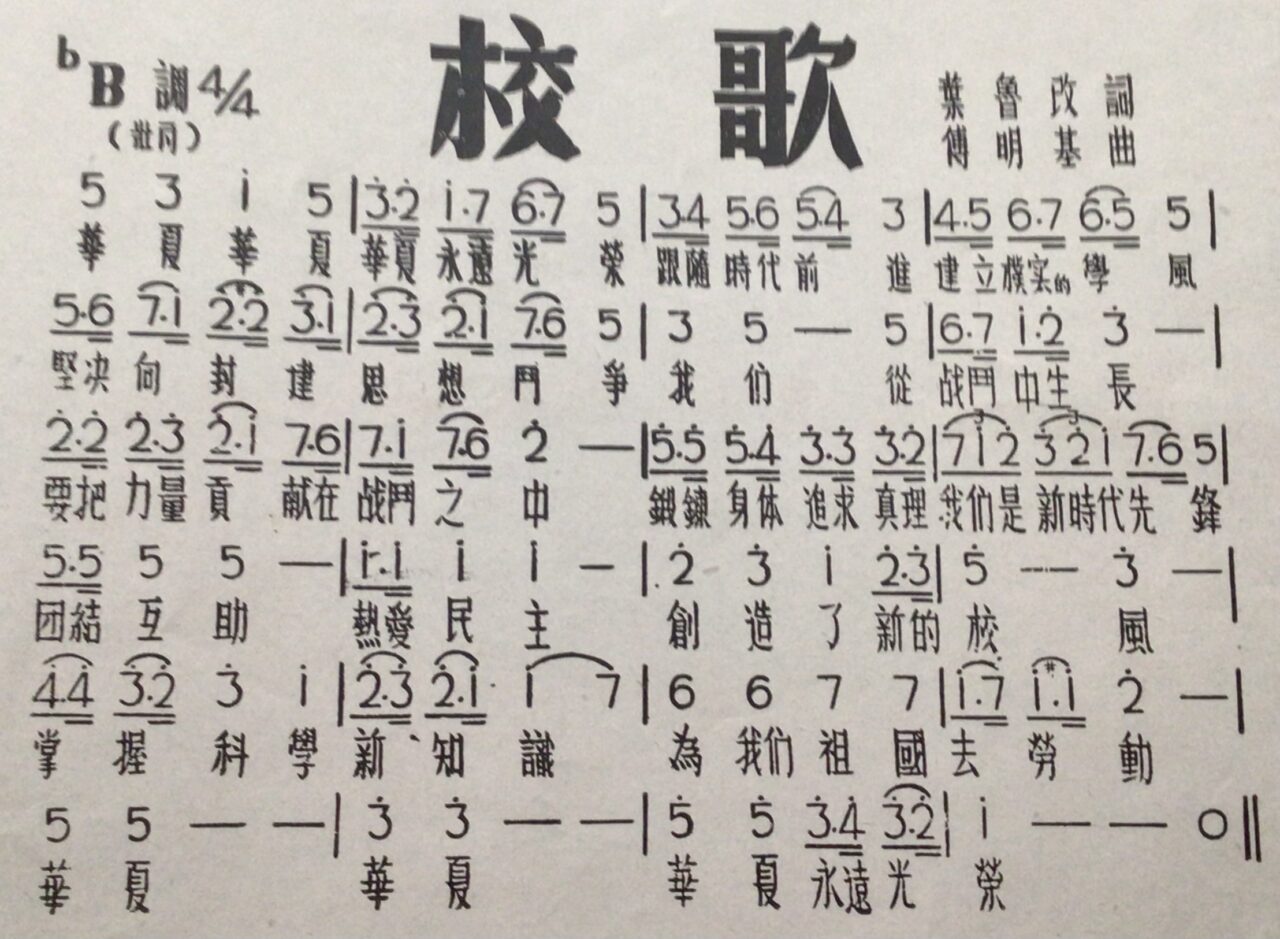 校歌
ᵇB 調 4/4
(壯月)
葉魯改詞
傅明基曲
5 3 i 5 | 3̇·2̇ i·7 6·7 5 | 3·4 5·6 5·4 3 | 4·5 6·7 6·5 5 |
華夏華夏 華夏永遠光榮 跟隨時代前進 建立樸实的學風
5·6 7·i 2̇·#2̇ 3̇·i | 2̇·3̇ 2̇·i 7·6 5 | 3 5 — 5 | 6·7 i·2̇ 3̇ — |
堅决向封建思想鬥爭 我们從战鬥中生長
2̇·2̇ 2̇·3̇ 2̇·i 7·6 | 7·i 7·6 2̇ — | 5̇·5̇ 5̇·4̇ 3̇·3̇ 3̇·2̇ | 7 i 2̇ 3̇ 2̇ i 7·6 5 |
要把力量貢献在战鬥之中 鍛鍊身体追求真理 我们是新時代先鋒
5·5 5 5 — | i·i i i — | 2̇ 3̇ i 2̇·3̇ | 5̇ — 3̇ — |
团結互助 熱愛民主 創造了新的校風
4̇·4̇ 3̇·2̇ 3̇ i | 2̇·3̇ 2̇·i i 7 | 6 6 7 7 | i·7 i·#i 2̇ — |
掌握科學新、知識 為我们祖國去勞動
5 5 — — | 3̇ 3̇ — — | 5̇ 5̇ 3̇·4̇ 3̇·2̇ | i — — 0 ‖
華夏 華夏 華夏永遠光榮